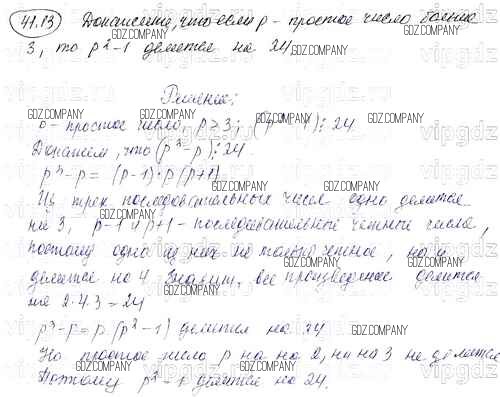 41.13 Докажите, что если p - простое число больше
3, то p²-1 делится на 24.
Решение:
p - простое число, p > 3; (p²-1)⋮24
Докажем, что (p³-p)⋮24.
p³-p = (p-1)·p(p+1)
Из трех последовательных чисел одно делится
на 3, p-1 и p+1 - последовательные четные числа,
поэтому одно из них не только четное, но и
делится на 4. Значит, все произведение делится
на 2·4·3 = 24
p³-p = p(p²-1) делится на 24
Но простое число p ни на 2, ни на 3 не делится
Поэтому p²-1 делится на 24.
GDZ.COMPANY
vipgdz